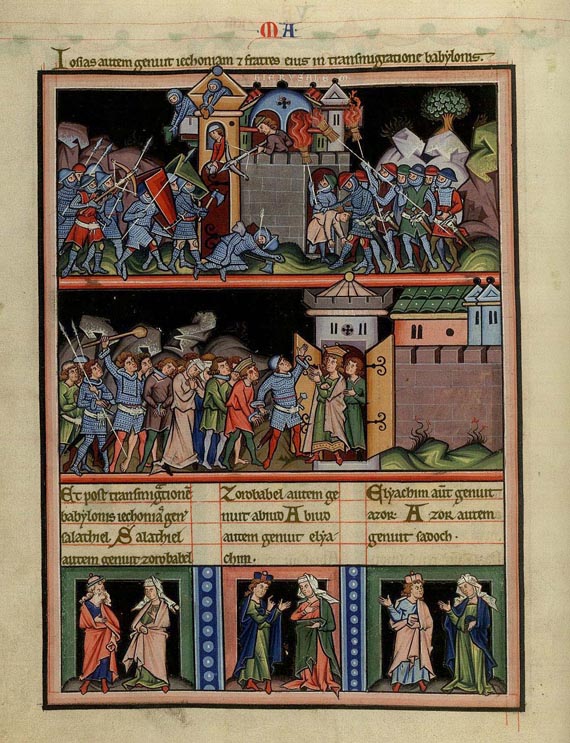 ·MA·
Iosias autem genuit iechoniam ⁊ fratres eius in transmigratione babylonis.
Et post transmigrationē
babylonis iechonia gen̄
salathiel. Salathiel
autem genuit zorobabel
Zorobabel autem ge
nuit abiud Abiud
autem genuit elya
chim.
Elyachim aūt genuit
azor. Azor autem
genuit sadoch.